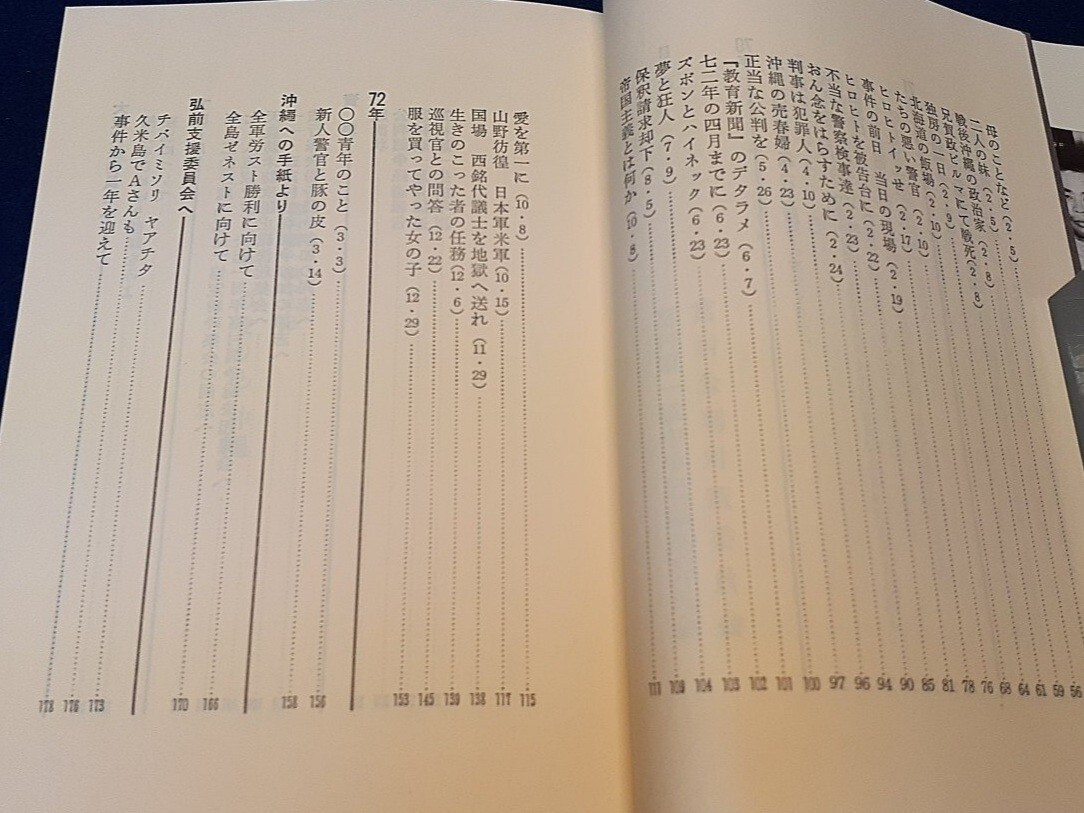 母のことなど(2・5)
二人の妹(2・5)
戦後沖縄の政治家(2・8)
兄賀政ビルマにて戦死(2・8)
独房の一日(2・9)
北海道の飯場(2・10)
たちの悪い警官(2・10)
ヒロヒトイッせ(2・17)
事件の前日 当日の現場(2・19)
ヒロヒトを被告台に(2・22)
不当な警察検事達(2・23)
おん念をはらすために(2・24)
判事は犯罪人(4・10)
沖縄の売春婦(4・23)
正当な公判を(5・26)
『教育新聞』のデタラメ(6・7)
七二年の四月までに(6・23)
ズボンとハイネック(6・23)
夢と狂人(7・9)
保釈請求却下(8・5)
帝国主義とは何か(10・8)
56 59 61 64 68 76 78 81 85 90 94 96 97 100 101 102 103 104 109 111
愛を第一に(10・8)……115
山野彷徨 日本軍米軍(10・15)……117
国場 西銘代議士を地獄へ送れ(11・29)……138
生きのこった者の任務(12・6)……139
巡視官との問答(12・22)……145
服を買ってやった女の子(12・29)……153
72年
〇〇青年のこと(3・3)……156
新人警官と豚の皮(3・14)……158
沖縄への手紙より
全軍労スト勝利に向けて……166
全島ゼネストに向けて……170
弘前支援委員会へ
チバイミソリ ヤアチタ……173
久米島でAさんも……176
事件から一年を迎えて……178